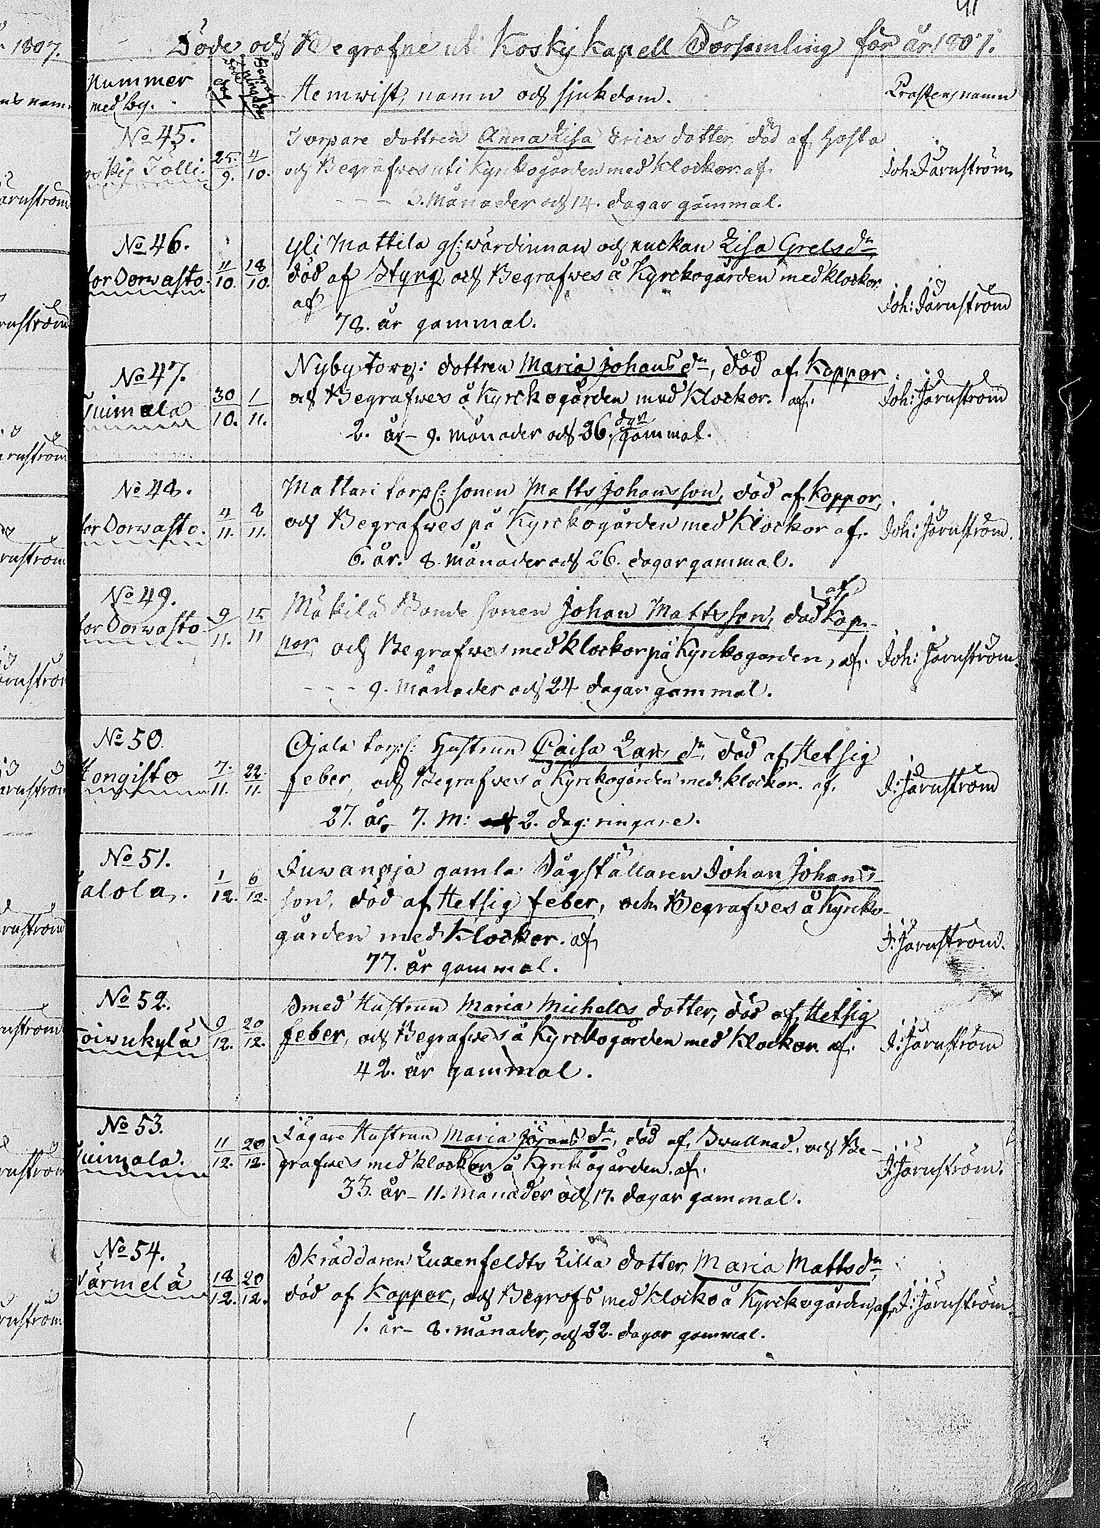 Döde och Begrafne uti Koskis kapell Församling för år 1807.
Nummer med by.
död
Hemwist, namn och sjukdom.
Prästens namn
No 45.
25/9. 4/10.
Torpare dottren Anna Lisa Ericsdotter, död af hosta
och Begrafwes uti Kyrckogården med klockor af.
3. Månader och 14. dagar gammal.
Joh: Järnström
No 46.
11/10 18/10.
Yli Mattila gl: wärdinnan och enckan Lisa Grelsdr
död af Styng och Begrafwes å Kyrckogården med klockor
af
78. år gammal.
Joh: Järnström
No 47.
Tuimala
30/10. 1/11.
Nyby torp: dottren Maria Johans dr, död af Koppor
och Begrafwes å Kyrckogården med Klockor. af.
2. år – 9. månader och 26. dgr gammal.
Joh: Järnström
No 48.
4/11. 8/11.
Mattari torps: sonen Matts Johansson, död af Koppor,
och Begrafwes på Kyrckogården med Klockor af.
6. år. 8. månader och 26. dagar gammal.
Joh: Järnström.
No 49.
9/11. 15/11
Mäkilä Bonde sonen Johan Mattsson, död af Kop-
por, och Begrafwes med klockor på Kyrckogården, af.
9. Månader och 24 dagar gammal.
Joh: Järnström
No 50.
Hongisto
7./11. 22/11.
Ojala torps: Hustrun Caisa Lars dr död af Hetsig
feber och Begrafwes å Kyrckogården med klockor. af.
27. år, 7. M: 2. dag: ringare.
J: Järnström
No 51.
1/12. 6/12.
gamla Johan Johans-
son, död af Hetsig feber, och Begrafwes å Kyrcko-
gården med klockor. af
77. år gammal.
J: Järnström.
No 52.
9/12. 20/12.
Smed Hustrun Maria Michells dotter, död af Hetsig
feber, och Begrafwes å Kyrckogården med klockor af.
42. år gammal.
J: Järnström
No 53.
Tuimala.
11/12. 20/12.
Hustrun Maria Jörans dr, död af Swullnad, och Be-
grafwes med klockor å Kyrckogården. af.
33. år – 11. Månader och 17. dagar gammal.
J: Järnström.
No 54.
Särmelä
18/12. 20/12.
Skräddaren Luxenfeldts Lilla dotter, Maria Mattsdr,
död af Koppor, och Begrofs med klocko å Kyrckogården, af.
1. år – 8. månader, och 22. dagar gammal.
J: Järnström.